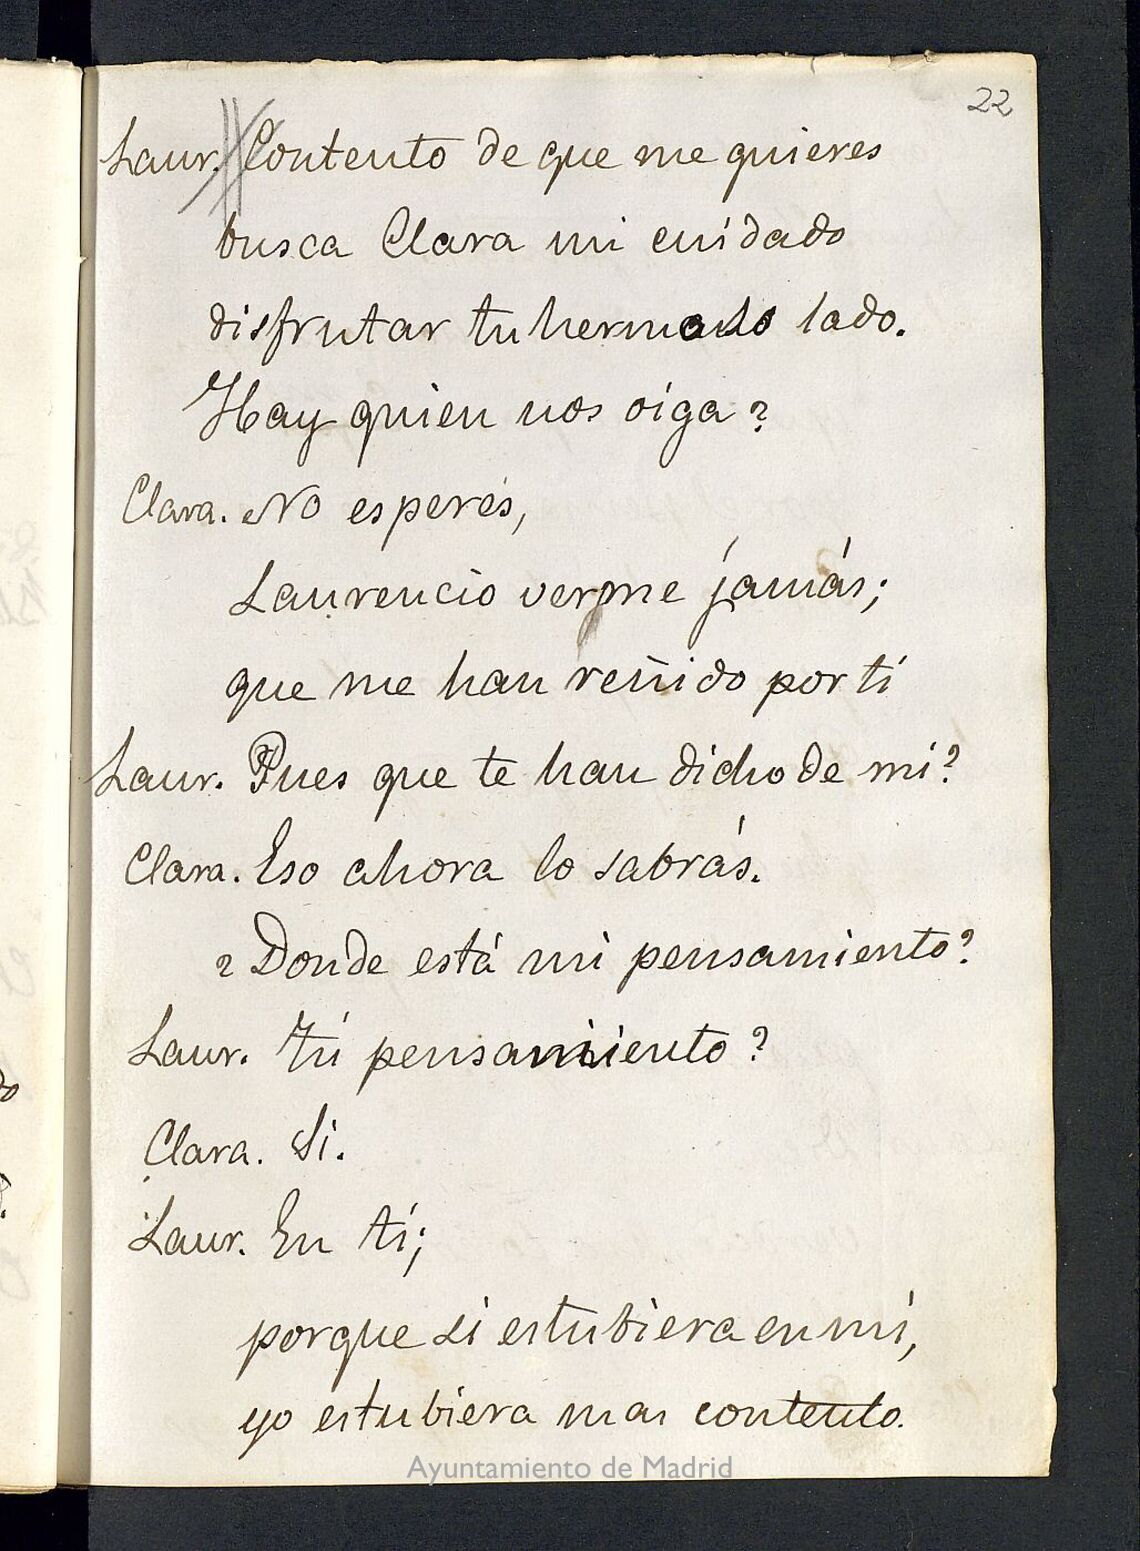 22
Laur. Contento de que me quieres
busca Clara mi cuidado
disfrutar tu hermoso lado.
Hay quien nos oiga?
Clara. No esperes,
Laurencio verme jamás;
que me han reñido por tí
Laur. Pues que te han dicho de mi?
Clara. Eso ahora lo sabrás.
¿Donde está mi pensamiento?
Laur. Tú pensamiento?
Clara. Si.
Laur. En tí;
porque si estubiera en mí,
yo estubiera mas contento.
Ayuntamiento de Madrid